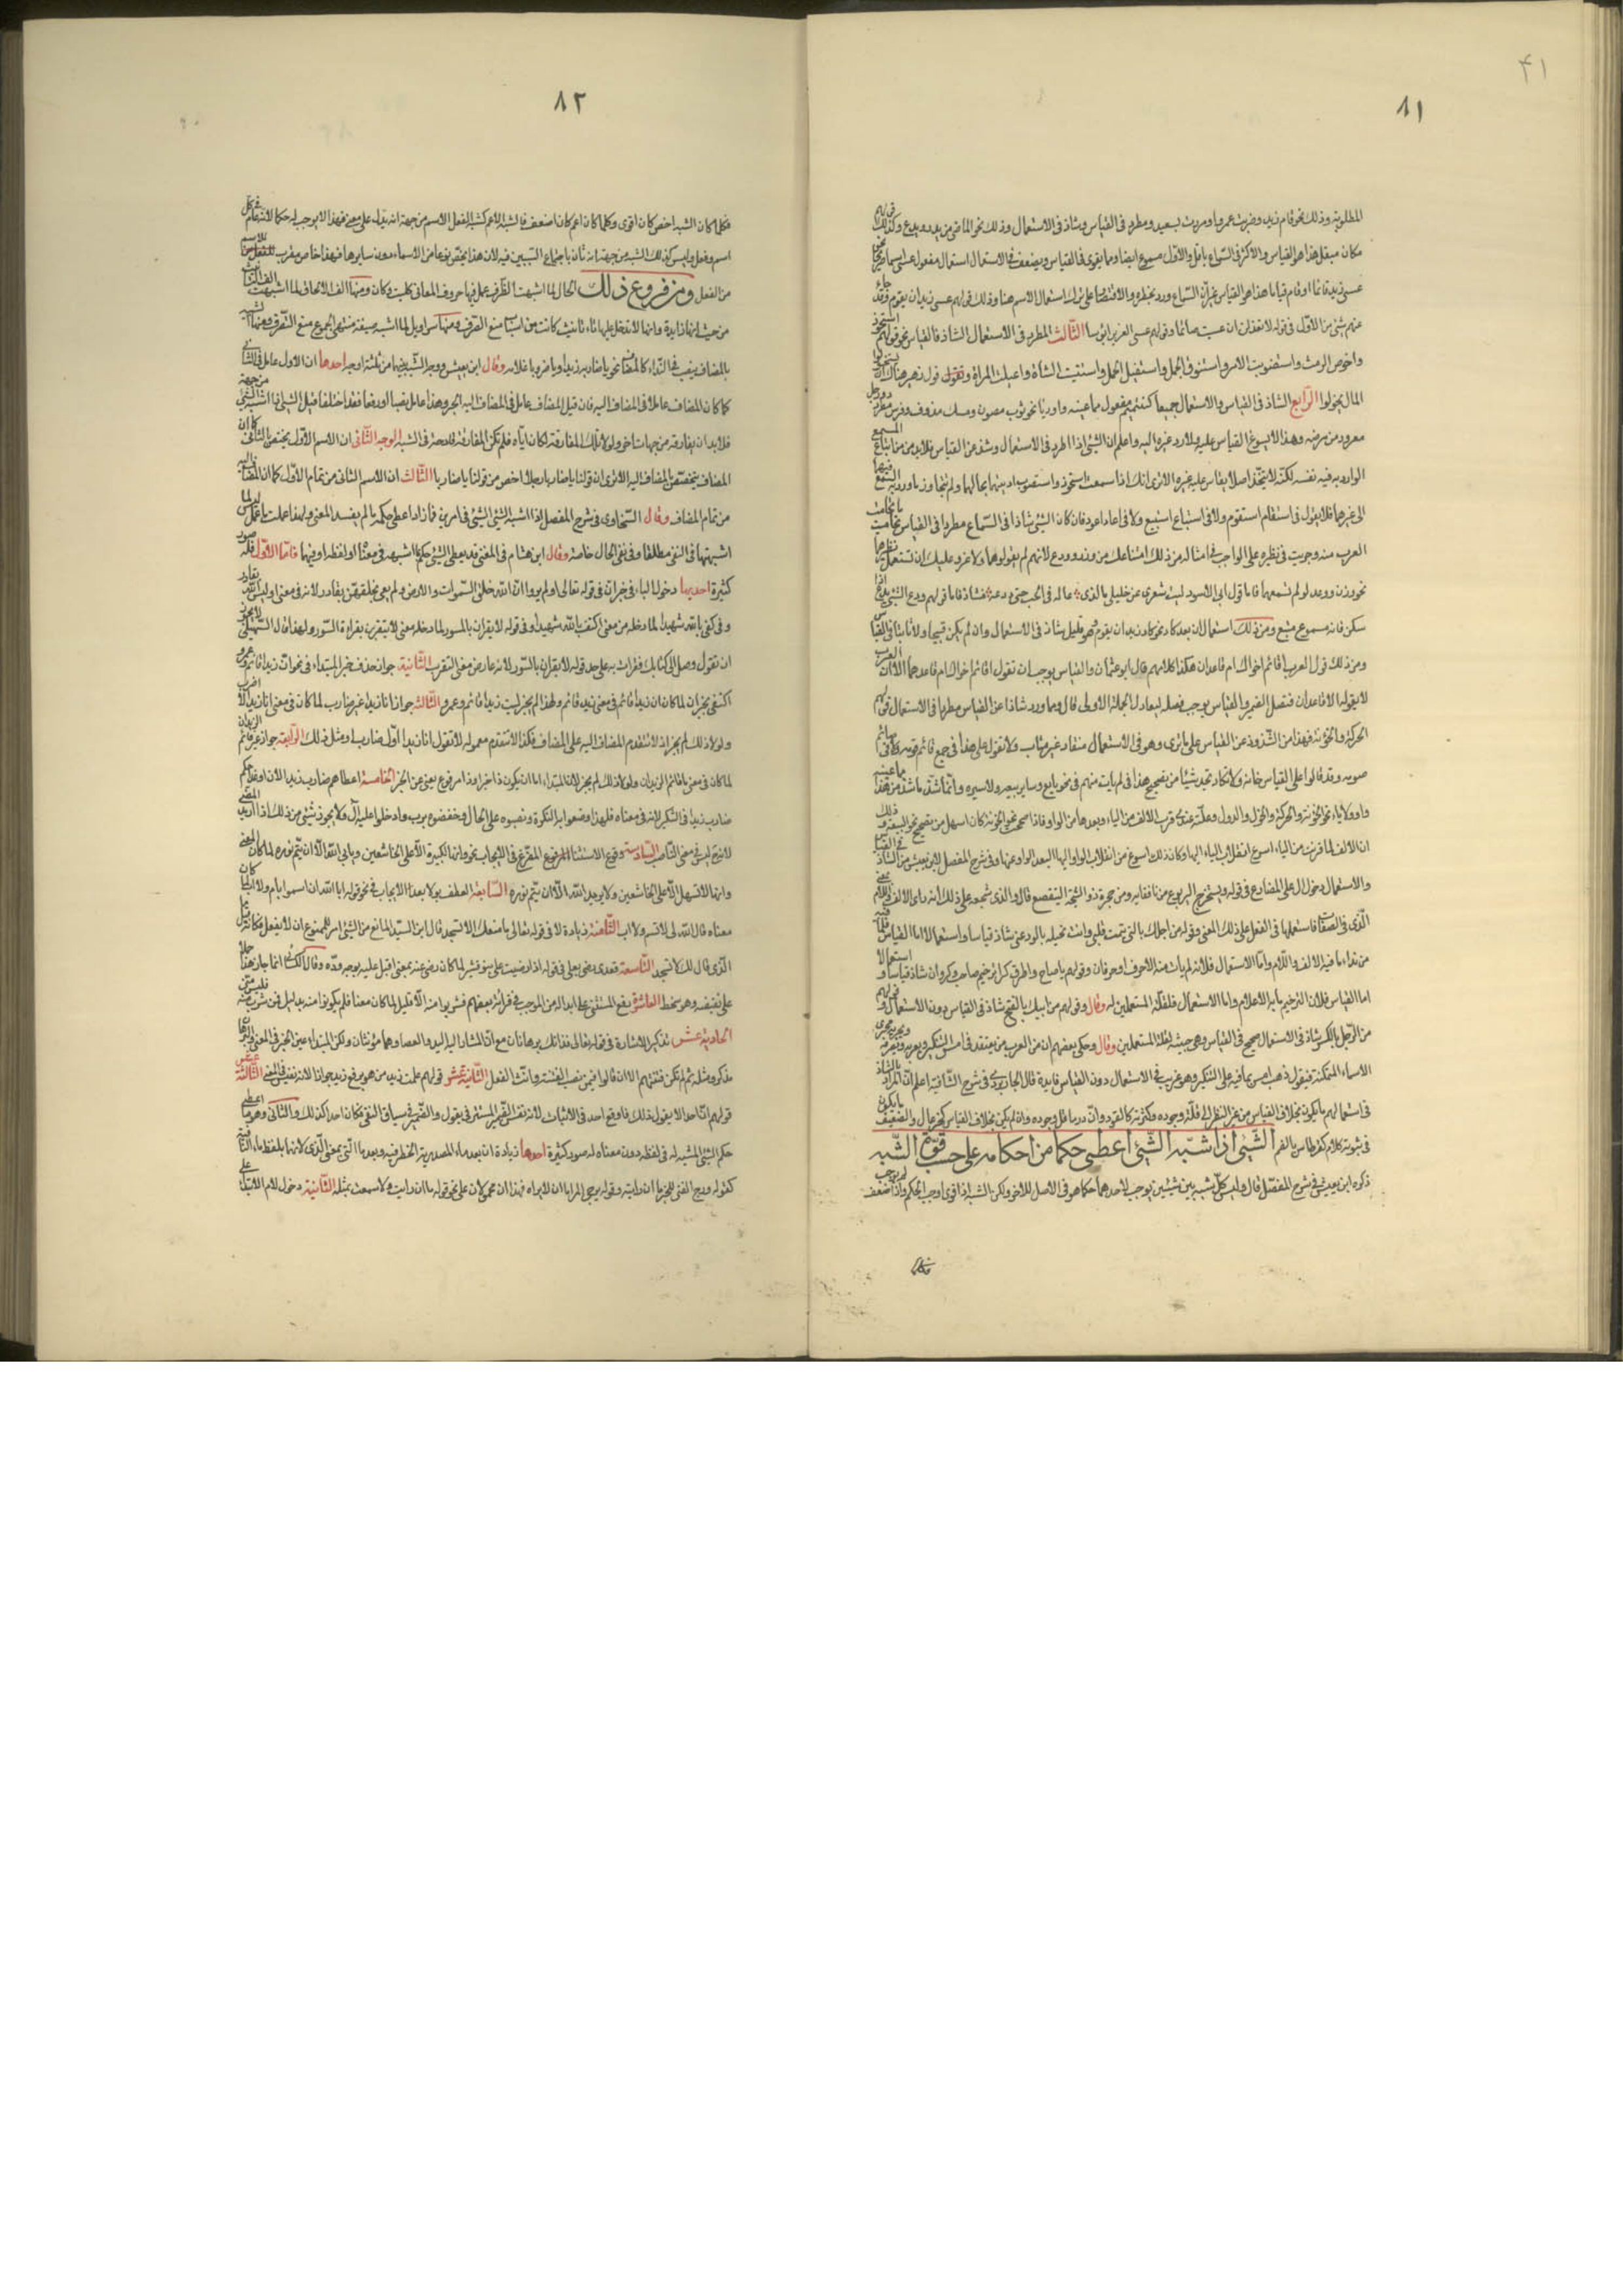 ٤١
٨١
المطلوبة وذلك نحو قام زيد وضربت عمروا ومررت بسعيد ومطرد فى القياس وشاذ فى الاستعمال وذلك نحو الماضى من يذر ويدع وكذلك قولهم
مكان مبقل هذا هو القياس والاكثر فى السماع باقل والاول مسموع ايضا ومما يقوى فى القياس ويضعف فى الاستعمال استعمال مفعول عسى اسما صريحا نحو
عسى زيد قائما او قام قياما هذا هو القياس غير ان السماع ورد بحظره والاقتصار على ترك استعمال الاسم هنا وذلك قولهم عسى زيد ان يقوم وقد جاء
عنهم شئ من الاول فى قوله لا تعذلن انى عسيت صائما وقولهم عسى الغوير ابؤسا الثالث المطرد فى الاستعمال الشاذ فى القياس نحو قولهم استحوذ
واخوص الرمث واستصوبت الامر واستنوق الجمل واستفيل الجمل واستتيست الشاة واغيلت المراة وقول زهير هنالك ان يستخولوا
المال يخولوا الرابع الشاذ فى القياس والاستعمال جميعا كتتميم مفعول مما عينه واو او ياء نحو ثوب مصوون ومسك مدووف وفرس مقوود ورجل
معوود من مرضه وهذا لا يسوغ القياس عليه ولا رد غيره اليه واعلم ان الشئ اذا اطرد فى الاستعمال وشذ عن القياس فلابد من اتباع السمع
الوارد به فيه نفسه لكنه لا يتخذ اصلا يقاس عليه غيره الا ترى انك اذا سمعت استحوذ واستصوب اديتهما بحالهما ولم تتجاوز ما ورد به السمع فيهما
الى غيرهما فلا تقول فى استقام استقوم ولا فى استباع استبيع ولا فى اعاد اعود فان كان الشئ شاذا فى السماع مطردا فى القياس تحاميت ما تحامت
العرب منه وجريت فى نظيره على الواجب فى امثاله من ذلك امتناعك من وذر وودع لانهم لم يقولوهما ولا غرو عليك ان تستعمل نظيرهما
نحو وزن ووعد لو لم تسمعهما فاما قول ابى الاسود ليت شعرى عن خليلى ما الذى غاله فى الحب حتى ودعه فشاذ فاما قولهم ودع الشئ يدع اذا
سكن فانه مسموع متبع ومن ذلك استعمال ان بعد كاد نحو كاد زيد ان يقوم فهو قليل شاذ فى الاستعمال وان لم يكن قبيحا ولا مأبيا فى القياس
ومن ذلك قول العرب اقائم اخواك ام قاعدان هكذا كلامهم قال ابو عثمان والقياس يوجب ان تقول اقائم اخواك ام قاعد هما الا ان العرب
لا يقوله الا قاعدان فتصل الضمير والقياس يوجب فصله ليعادل الجملة الاولى قال ومما ورد شاذا عن القياس مطردا فى الاستعمال قولهم
الحوكة والخونة فهذا من الشذوذ عن القياس على ما ترى وهو فى الاستعمال منقاد غير متاب ولا تقول على هذا فى جمع قائم قومة ولا فى صائم
صومة وقد قالوا على القياس خانة ولا تكاد تجد شيئا من تصحيح هذا فى لم يات منهم فى نحو بايع وساير بيعة ولا سيرة وانما شذ ما شذ من هذا ما عينه
واو ولا ياء نحو الخونة والحوكة والخول والدول وعلته عندى قرب الالف من الياء وبعدها من الواو فاذا صحت نحو الخونة كان اسهل من تصحيح نحو البيعة وذلك
ان الالف لما قربت من الياء اسرع انقلاب الياء اليها وكان ذلك اسوغ من انقلاب الواو اليها لبعد الواو عنها وفى شرح المفصل لابن يعيش من الشاذ فى القياس
والاستعمال دخول ال على المضارع فى قوله ويستخرج اليربوع من نافقائه ومن جحره ذو الشيخة اليتقصع قال والذى شجعه على ذلك انه راى الالف واللام بمعنى
الذى فى الصفات فاستعملها فى الفعل على ذلك المعنى وقوله من اجلك يا التى تيمت قلبى وانت بخيلة بالود عنى شاذ قياسا واستعمالا اما القياس فلما فيه
من نداء ما فيه الالف واللام واما الاستعمال فلانه لم يات منه الا حرف او حرفان وقولهم يا صاح واطرق كرا ترخيم صاحب وكروان شاذ قياسا واستعمالا
اما القياس فلان الترخيم بابه الاعلام واما الاستعمال فلقلة المستعملين له وقال وقولهم من ابيك بالفتح شاذ فى القياس دون الاستعمال وقولهم
من الرجل بالكسر شاذ فى الاستعمال صحيح فى القياس وهى خبيثة لقلة المستعملين وقال وحكى بعضهم ان من العرب من يعتقد فى امس التنكير ويعربه ويصرفه ويجريه مجرى
الاسماء المتمكنة فيقول ذهب امس بما فيه على التنكير وهو غريب فى الاستعمال دون القياس فايدة قال الجاربردى فى شرح الشافية اعلم ان المراد بالشاذ
فى استعمالهم ما يكون بخلاف القياس من غير النظر الى قلة وجوده وكثرته كالقود والنادر ما قل وجوده وان لم يكن بخلاف القياس كخزعال والضعيف ما يكون
فى ثبوته كلام كقرطاس بالضم الشئ اذا شبه الشئ اعطى حكما من احكامه على حسب قوة الشبه
ذكره ابن يعيش فى شرح المفصل قال وليس كل شبه بين شيئين يوجب لاحدهما حكما هو فى الاصل للاخر ولكن الشبه اذا قوى اوجب الحكم واذا ضعف لم يوجب
فكلما
٨٢
فكلما كان الشبه اخص كان اقوى وكلما كان اعم كان اضعف فالشبه الاعم كشبه الفعل الاسم من جهة انه يدل على معنى فهذا لا يوجب له حكما لانه عام فى كل
اسم وفعل وليس كذلك الشبه من جهة انه ثان باجتماع السببين فيه لان هذا يختص نوعا من الاسماء دون سايرها فهذا خاص مقرب للاسم
من الفعل ومن فروع ذلك الحال لما اشبهت الظرف عمل فيها حروف المعانى كليت وكان ومنها الف الالحاق لما اشبهت الف التانيث
من حيث انها زايدة وانها لا تدخل عليها تاء تانيث كانت من اسباب منع الصرف ومنها سراويل لما اشبه صيغة منتهى الجموع منع الصرف ومنها
بالمضاف ينصب فى النداء كالمضاف نحو يا ضاربا زيدا ويا مضروبا غلامه وقال ابن يعيش ووجه الشبه بينهما من ثلثة اوجه احدها ان الاول عامل فى الثانى
كما كان المضاف عاملا فى المضاف اليه فان قيل المضاف عامل فى المضاف اليه الجر وهذا عامل نصبا او رفعا فقد اختلفا قيل الشئ اذا اشبه الشئ من جهة
فلابد ان يفارقه من جهات اخر ولولا تلك المفارقة لكان اياه فلم تكن المفارقة قادحة فى الشبه الوجه الثانى ان الاسم الاول يختص بالثانى كما ان
المضاف يتخصص بالمضاف اليه الا ترى ان قولنا يا ضاربا رجلا اخص من قولنا يا ضاربا الثالث ان الاسم الثانى من تمام الاول كما ان المضاف اليه
من تمام المضاف وقال السخاوى فى شرح المفصل اذا اشبه الشئ الشئ فى امرين فما زاد اعطى حكمه ما لم يفسد المعنى ولهذا عملت ما عمل ليس لما
اشبهتها فى النفى مطلقا وفى نفى الحال خاصة وقال ابن هشام فى المغنى قد يعطى الشئ حكم ما اشبهه فى معناه او لفظه او فيهما فاما الاول فله صور
كثيرة احديها دخول الباء فى خبر ان فى قوله تعالى اولم يروا ان الله خلق السموات والارض ولم يعى بخلقهن بقادر لانه فى معنى اوليس الله بقادر
وفى كفى بالله شهيدا لما دخله من معنى اكتف بالله شهيدا وفى قوله لا يقران بالسور لما دخله معنى لا يتقربن بقراءة السور ولهذا قال السهيلى لا يجوز
ان تقول وصل الى كتابك فقرات به على حد قوله لا يقران بالسور لانه عار من معنى التقرب الثانية جواز حذف خبر المبتداء فى نحو ان زيدا قائم وعمرو
اكتفى بخبر ان لما كان ان زيدا قائم فى معنى زيد قائم ولهذا لم يجز ليت زيدا قائم وعمرو الثالثة جواز انا زيدا غير ضارب لما كان فى معنى انا زيدا لا اضرب
ولولا ذلك لم يجز اذ لا يتقدم المضاف اليه على المضاف فكذا لا يتقدم معموله لا تقول انا زيدا اول ضارب او مثل ذلك الرابعة جواز غير قائم الزيدان
لما كان فى معنى ما قائم الزيدان ولولا ذلك لم يجز لان المبتداء اما ان يكون ذا خبر او ذا مرفوع يغنى عن الخبر الخامسة اعطاهم ضارب زيد الان او غدا حكم
ضارب زيدا فى التنكير لانه فى معناه فلهذا وصفوا به النكرة ونصبوه على الحال وخفضوه برب وادخلوا عليه ال ولا يجوز شئ من ذلك اذا اريد المضى
لانه ليس فى معنى الناصب السادسة وقوع الاستثناء المفرغ فى الايجاب نحو وانها لكبيرة الا على الخاشعين ويابى الله الا ان يتم نوره لما كان المعنى
وانها لا تسهل الا على الخاشعين ولا يريد الله الا ان يتم نوره السابعة العطف بولا بعد الايجاب فى نحو قوله ابى الله ان اسمو بام ولا اب لما كان
معناه قال الله لى لا تسم ولا اب الثامنة زيادة لا فى قوله تعالى ما منعك الا تسجد قال ابن السيد المانع من الشئ امر للممنوع ان لا يفعل فكانه قيل
الذى قال لك لا تسجد التاسعة تعدى رضى بعلى فى قوله اذا رضيت على بنو قشير لما كان رضى عنه بمعنى اقبل عليه بوجه وده وقال الكسائى انما جاز هذا حملا
على نقيضه وهو سخط العاشرة رفع المستثنى على ابداله من الموجب فى قراءة بعضهم فشربوا منه الا قليل لما كان معناه فلم يكونوا منه بدليل فمن شرب منه فليس منى
الحادية عشر تذكير الاشارة فى قوله تعالى فذانك برهانان مع ان المشار اليه اليد والعصا وهما مؤنثان ولكن المبتداء عين الخبر فى المعنى والبرهان
مذكر ومثله ثم لم تكن فتنتهم الا ان قالوا فيمن نصب الفتنة وانث الفعل الثانية عشر قولهم علمت زيد من هو برفع زيد جوازا لانه نفس من فى المعنى الثالثة عشر
قولهم ان احدا لا يقول ذلك فاوقع احد فى الاثبات لانه نفس الضمير المستتر فى يقول والضمير فى سياق النفى فكان احد كذلك والثانى وهو ما اعطى
حكم الشئ المشبه له فى لفظه دون معناه له صور كثيرة احدها زيادة ان بعد ما المصدرية الظرفية وبعد ما التى بمعنى الذى لانهما بلفظ ما النافية
كقوله ورج الفتى للخير ما ان رايته وقوله يرجى المرء ما ان لا يراه فهذا ان محمولان على نحو قوله ما ان رايت ولا سمعت بمثله الثانية دخول لام الابتداء على